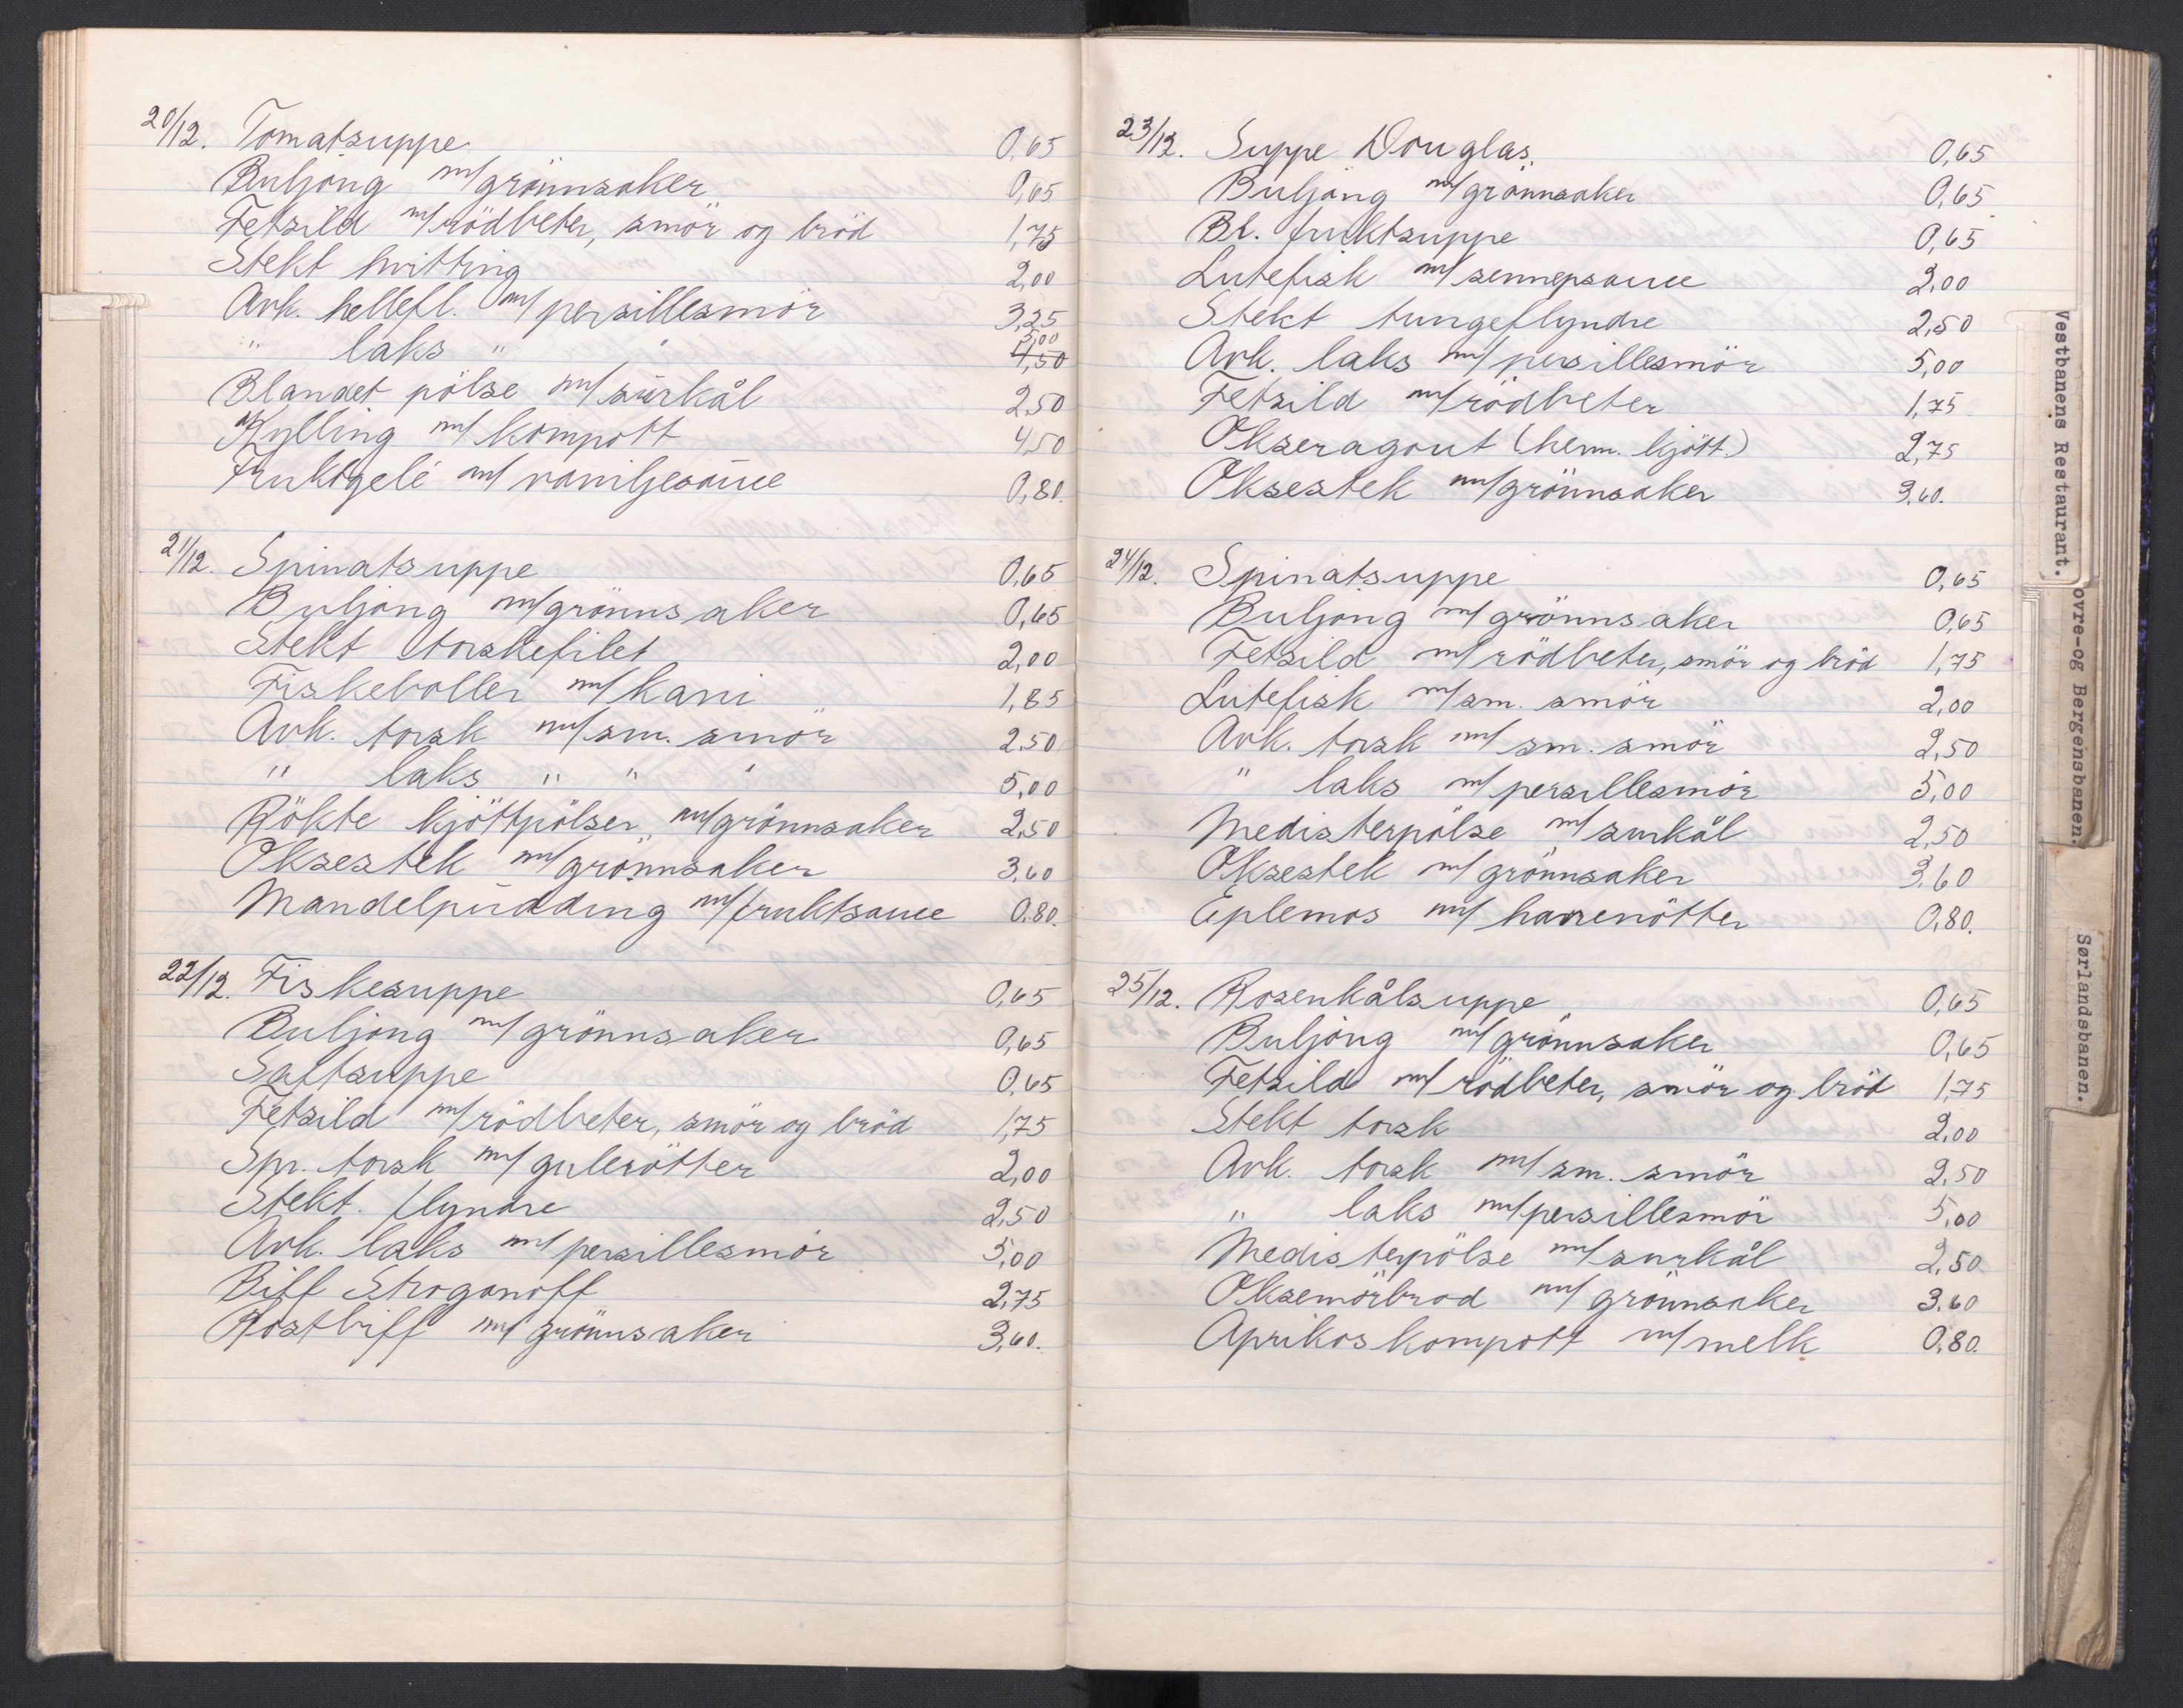 20/12. Tomatsuppe 0,65
Buljong m/grönnsaker 0,65
Fetsild m/rödbeter, smör og bröd 1,75
Stekt hvitting 2,00
Avk. hellefl. m/persillesmör 3,25
" laks " " 5,00 4,50
Blandet pölse m/surkål 2,50
Kylling m/kompott 4,50
Fruktgelé m/vaniljesauce 0,80.
21/12. Spinatsuppe 0,65
Buljong m/grönnsaker 0,65
Stekt torskefilet 2,00
Fiskeboller m/kari 1,85
Avk. torsk m/sm. smör 2,50
" laks " " " 5,00
Rökte kjöttpölser m/grönnsaker 2,50
Oksestek m/grönnsaker 3,60
Mandelpudding m/fruktsauce 0.80.
22/12. Fiskesuppe 0,65
Buljong m/grönnsaker 0,65
Saftsuppe 0,65
Fetsild m/rödbeter, smör og bröd 1,75
Spr. torsk m/gulerötter 2,00
Stekt flyndre 2,50
Avk. laks m/persillesmör 5,00
Biff Stroganoff 2,75
Rostbiff m/grönnsaker 3,60.
23/12. Suppe Douglas. 0,65
Buljong m/grönnsaker 0,65
Bl. fruktsuppe 0,65
Lutefisk m/sennepsauce 2,00
Stekt tungeflyndre 2,50
Avk. laks m/persillesmör 5,00
Fetsild m/rödbeter 1,75
Okseragout (herm. kjött.) 2,75
Oksestek m/grönnsaker 3.60.
24/12. Spinatsuppe 0,65
Buljong m/grönnsaker 0,65
Fetsild m/rödbeter, smör og bröd 1,75
Lutefisk m/sm. smör 2,00
Avk. torsk m/sm. smör 2,50
" laks m/persillesmör 5,00
Medisterpölse m/surkål 2,50
Oksestek m/grönnsaker 3.60
Eplemos m/hasselnötter 0,80.
25/12. Rosenkålsuppe 0,65
Buljong m/grönnsaker 0,65
Fetsild m/rödbeter, smör og bröd 1,75
Stekt torsk 2,00
Avk. torsk m/sm. smör 2,50
" laks m/persillesmör 5,00
Medisterpölse m/surkål 2,50
Oksemörbrad m/grönnsaker 3.60
Aprikoskompott m/melk 0,80.
Vestbanens Restaurant.
ovre-og Bergensbanen.
Sørlandsbanen.